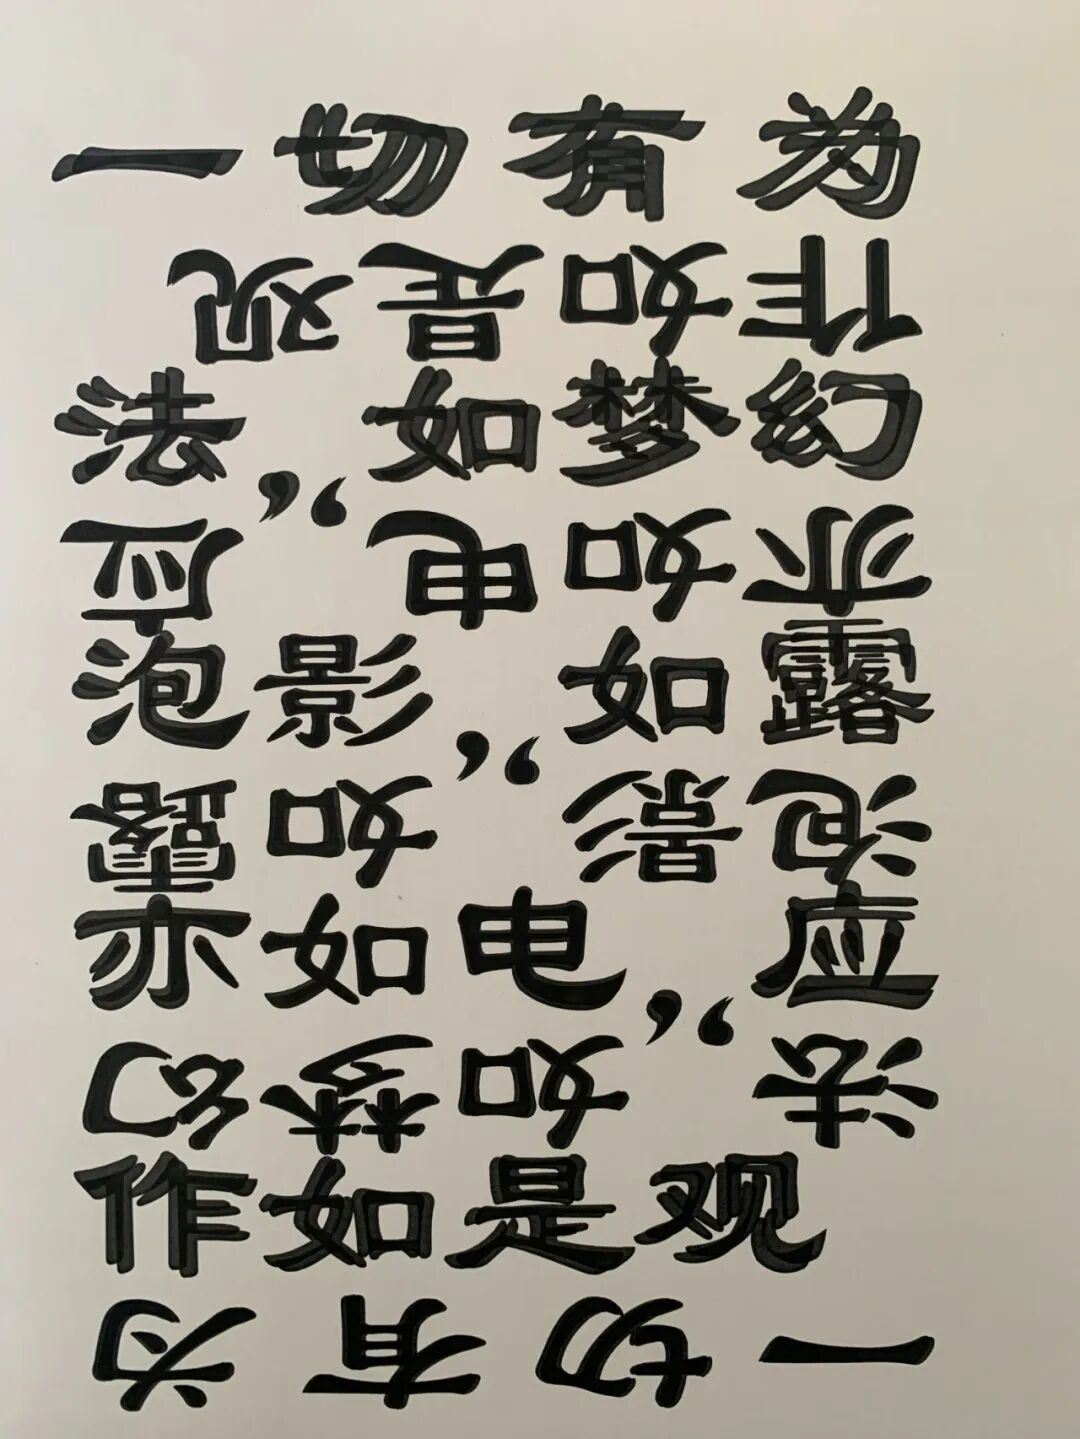 一切有为
法，如梦幻
泡影，如露
亦如电，应
作如是观
一切有为
法，如梦幻
泡影，如露
亦如电，应
作如是观